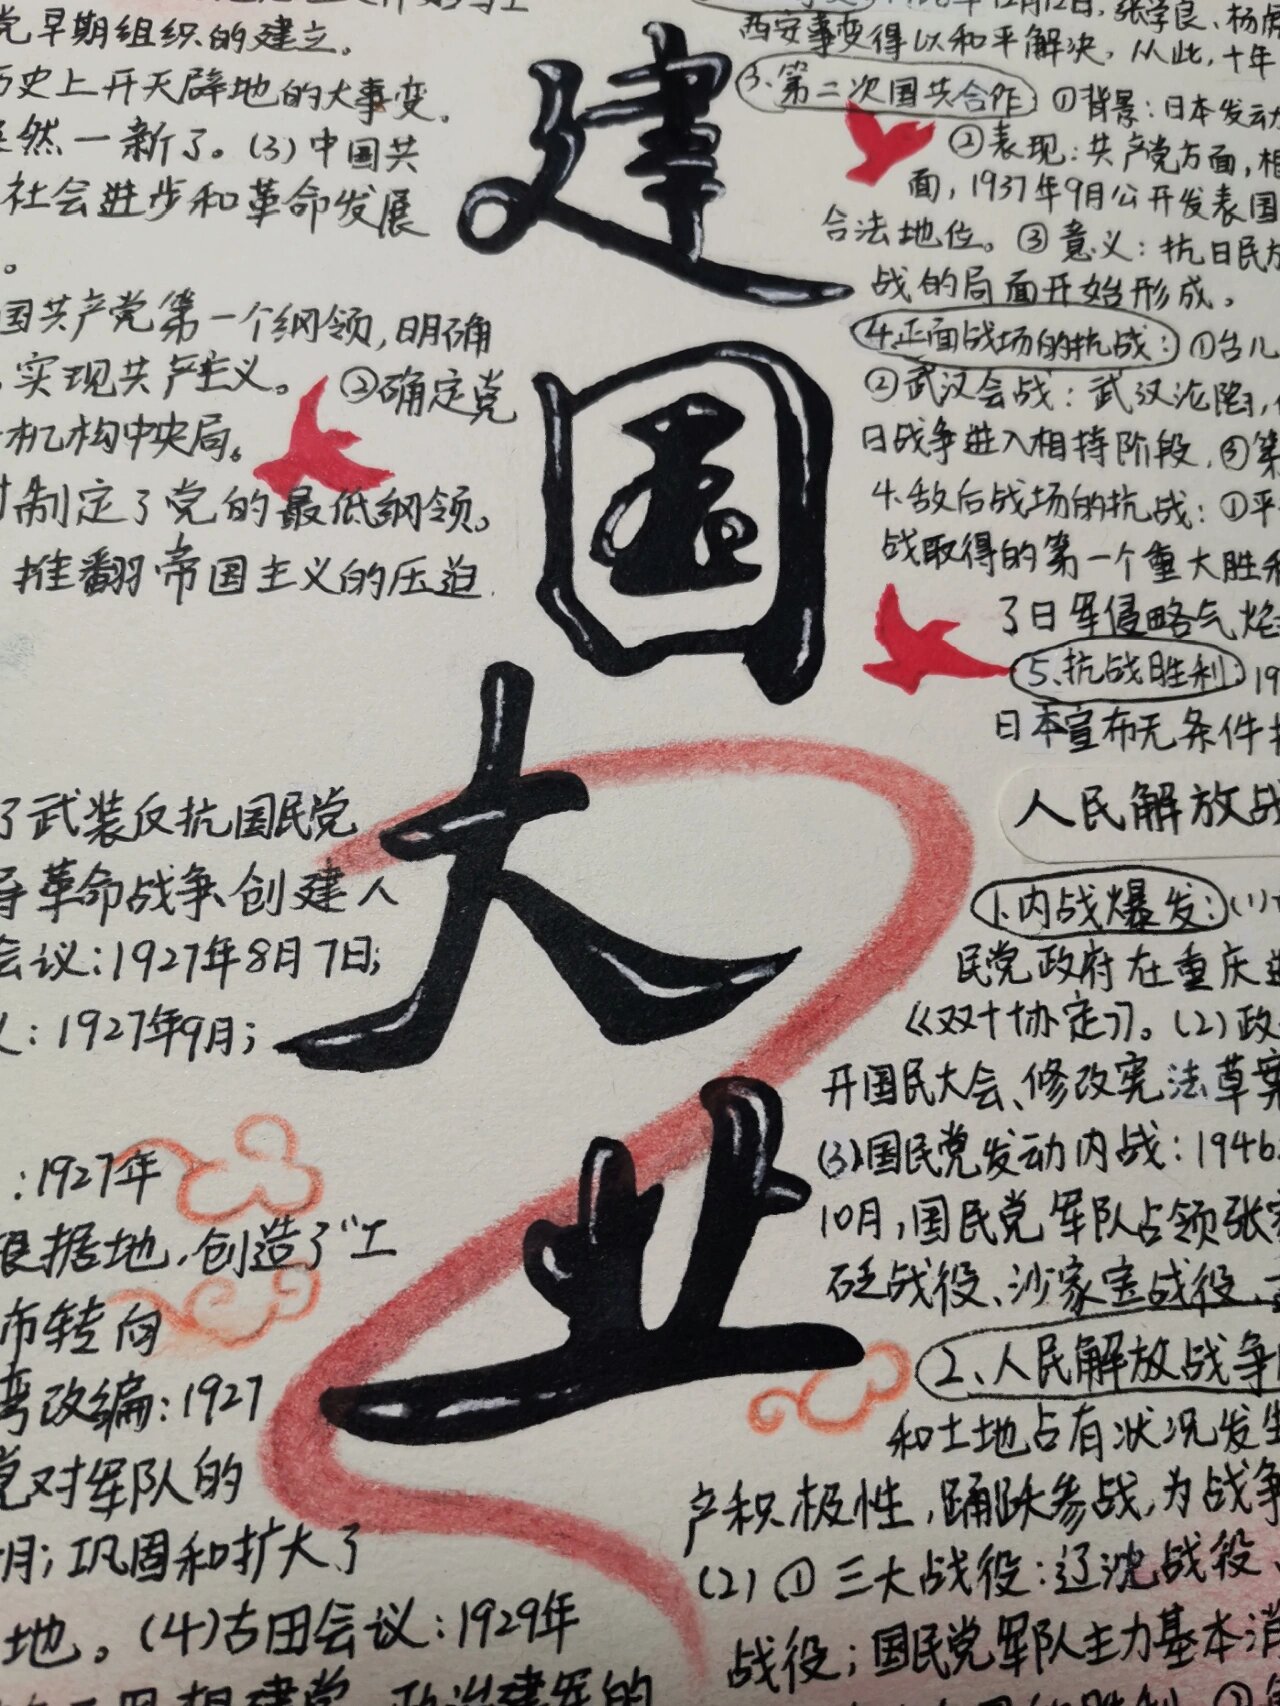 建国大业
党早期组织的建立。
历史上开天辟地的大事变。
然一新了。(3)中国共
社会进步和革命发展
。
国共产党第一个纲领,明确
实现共产主义。 ②确定党
机构中央局。
制定了党的最低纲领。
推翻帝国主义的压迫
了武装反抗国民党
导革命战争创建人
会议:1927年8月7日;
:1927年9月;
:1927年
根据地,创造了“工
市转向
湾改编:1927
党对军队的
月;巩固和扩大了
地。(4)古田会议:1929年
思想建党、政治建军的
年12月12日,张学良、杨虎
西安事变得以和平解决,从此,十年
3.第二次国共合作 ①背景:日本发动
②表现:共产党方面,
面,1937年9月公开发表国
合法地位。③意义:抗日民
战的局面开始形成。
4.正面战场的抗战:①台儿
②武汉会战:武汉沦陷,
日战争进入相持阶段,③第
4.敌后战场的抗战:①平
战取得的第一个重大胜利
了日军侵略气焰
5.抗战胜利:19
日本宣布无条件
人民解放战
1.内战爆发:(1)
民党政府在重庆
《双十协定》。(2)政
开国民大会、修改宪法草案
(3)国民党发动内战:1946
10月,国民党军队占领张家
战役、沙家 战役、
2、人民解放战争
和土地占有状况发生
产积极性,踊跃参战,为战争
(2)①三大战役:辽沈战役、
战役;国民党军队主力基本消